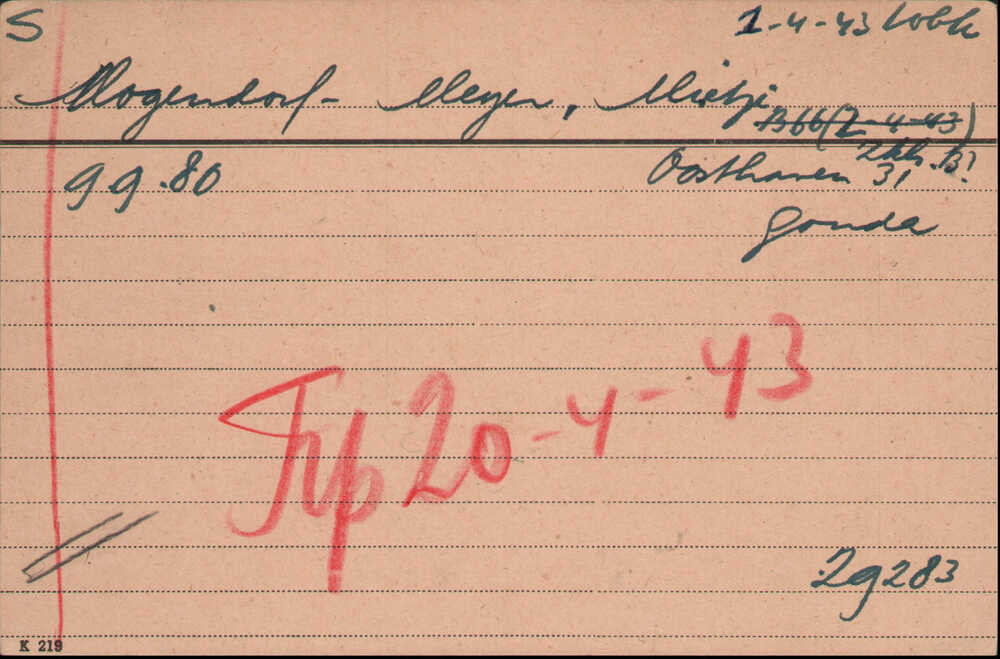 S 1-4-43 Wbk
Mogendorf - Meyer, Mietje
B66 (2-4-43)
Zkh. B?
9 9.80 Oosthaven 31
Gouda
Trp 20-4-43
29283
K 219